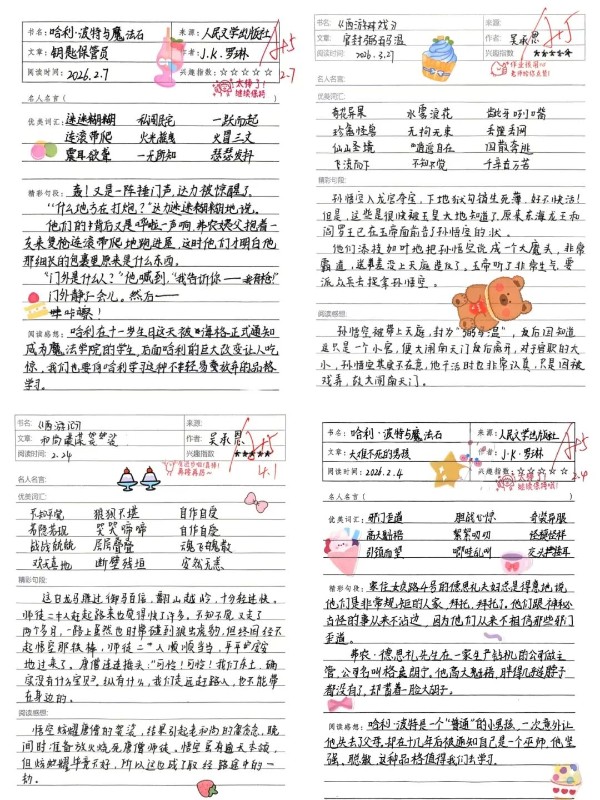 书名：哈利·波特与魔法石 来源：人民文学出版社
文章：钥匙保管员 作者：J.K.罗琳
阅读时间：2026.2.7 兴趣指数：☆☆☆☆☆
A+5
2.7
太棒了！
继续保持
名人名言（
优美词汇： 迷迷糊糊 私闯民宅 一跃而起
连滚带爬 火光摇曳 火冒三丈
震耳欲聋 一无所知 瑟瑟发抖
精彩句段： 轰！又是一阵捶门声，达力被惊醒了。
“什么地方在打炮？”达力迷迷糊糊地说。
他们的背后又是哗啦一声响，弗农姨父抱着一
支来复枪连滚带爬地跑进屋，这时他们才明白他
那细长的包裹里原来是什么东西。
“门外是什么人？”他喊到，“我告诉你——我有枪！”
门外静了一会儿。然后——
咔嚓！
阅读感想： 哈利在十一岁生日这天被海格正式通知
成为魔法学院的学生，后面哈利的巨大改变让人吃
惊，我们也要向哈利学习这种不轻易放弃的品格
学习。
书名：《西游记》 来源：
文章：官封弼马温 作者：吴承恩
阅读时间：2026.3.27 兴趣指数：★★★★☆
A+5
作业很用心
老师给你点赞！
名人名言：
优美词汇：
奇花异果 水雾浪花 龇牙咧嘴
珍禽怪兽 无拘无束 丢盔丢网
仙山圣境 逍遥自在 四散奔逃
飞流而下 不知不觉 千辛万苦
精彩句段：
孙悟空入龙宫夺宝，下地狱勾销生死簿，好不快活！
但是，这些是很快被玉皇大地知道了，原来东海龙王和
阎罗王已在玉帝面前告了孙悟空的状。
他们添枝加叶地把孙悟空说成个大魔头，非常
霸道，还要上天庭造反了，玉帝听了非常生气，要
派兵去捉拿孙悟空。
阅读感想：
孙悟空被带上天庭，封为“弼马温”，友后因知道
这只是一个小官，便大闹南天门反后离开，对于官职的大
小，孙悟空其实不在意，他干活时也非常认真，只是因被
戏弄，故大闹南天门。
书名：《西游记》 来源：
文章：和尚谋谋袈裟 作者：吴承恩
阅读时间：2.24 兴趣指数：★★★★★
A+5
4.1
有进步啦！真棒！
再接再厉
名人名言：
优美词汇：
不知不觉 狼狈不堪 自作自受
若隐若现 哭哭啼啼 自作自受
战战兢兢 层层叠叠 魂飞魄散
欢天喜地 断壁残垣 安然无恙
精彩句段：
这日龙马胜过御马百倍，翻山越岭，十分轻快。
师徒二人赶起路来也觉得快了许多。不知不觉，又走了
两个多月，一路上虽然也时常碰到狼虫虎豹，但终因经不
起悟空那铁棒，师徒二人顺顺当当，平平安安
地过来了。唐僧连连摇头：“可怜！可怜！我们东土，确
实没有什么宝贝，纵有什么，我们夜远赶路人，也不能带
在身边的。
阅读感想：
悟空炫耀唐僧的袈裟，结果引起老和尚的贪念，晚
间时准备放火烧死唐僧师徒。悟空虽有通天本领，
但炫耀毕竟不好，所以这也成了取经路途中的一
劫。
书名：哈利·波特与魔法石 来源：人民文学出版社
文章：大难不死的男孩 作者：J.K.罗琳
阅读时间：2026.2.4 兴趣指数：
A+5
2.4
太棒了！
继续保持哦！
名人名言（
优美词汇： 邪门歪道 胆战心惊 奇装异服
高大魁梧 絮絮叨叨 怪模怪样
引颈而望 唧哇乱叫 交头接耳
精彩句段： 家住女贞路4号的德思礼夫妇总是得意地说，
他们是非常规矩的人家，拜托，拜托了。他们跟神秘
古怪的事从来不沾边，因为他们从来不相信那些邪门
歪道。
弗农·德思礼先生在一家生产钻机的公司做主
管，公司名叫格朗宁。他高大魁梧，胖得几乎连脖子
都没有了，却蓄着一脸大胡子。
阅读感想： 哈利·波特是一个“普通”的小男孩，一次意外让
他失去了父母，却在十几年后被通知自己是一个巫师，他坚
强、聪敏，这种品格值得我们去学习。